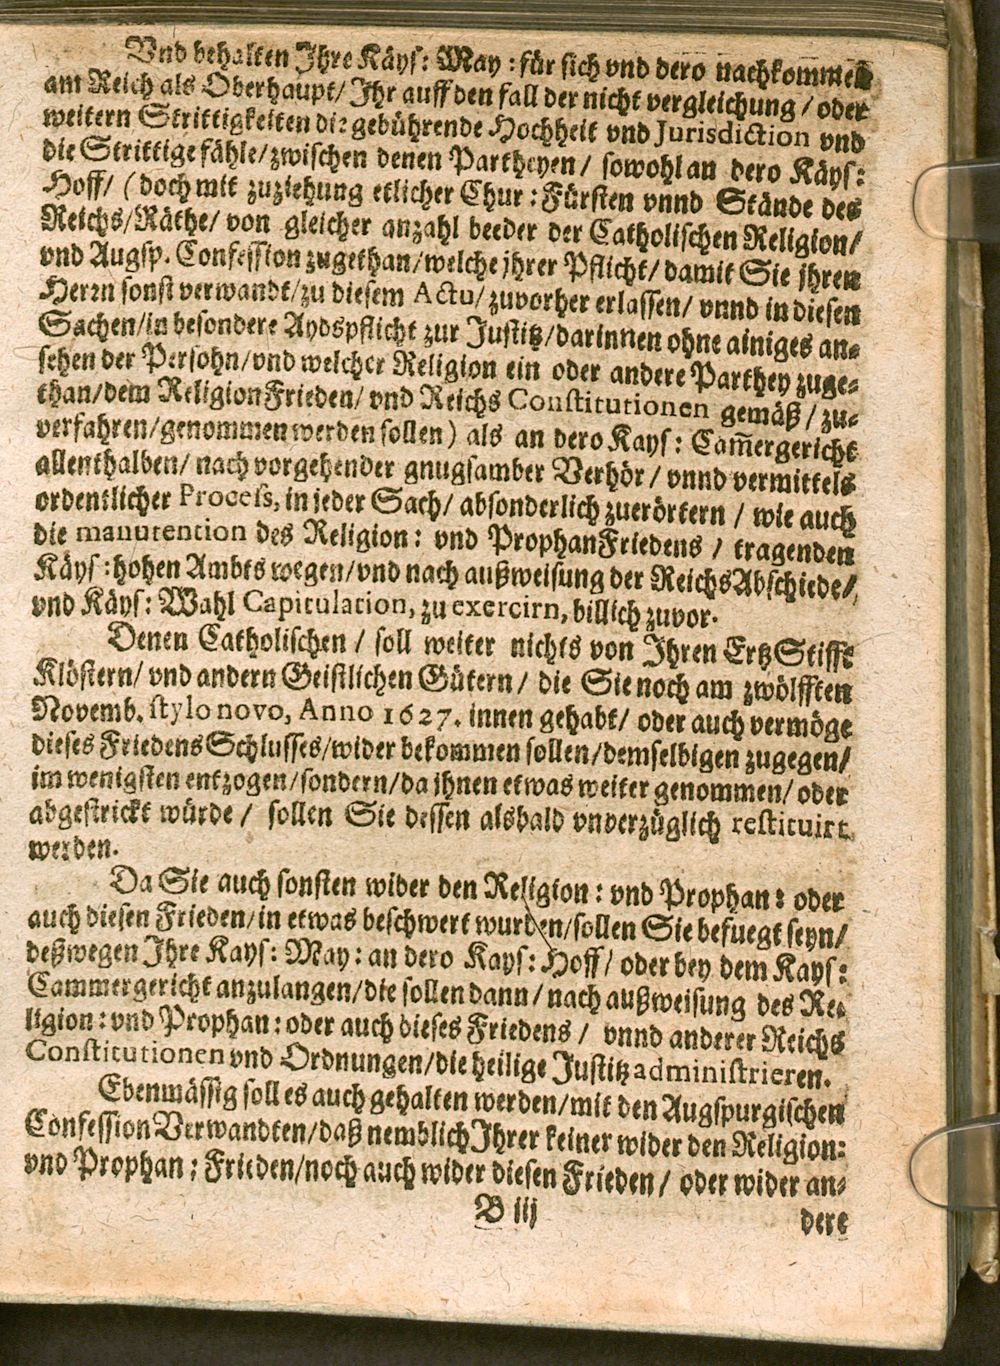 Vnd behalten Ihre Käys: May: für sich vnd dero nachkommen
am Reich als Oberhaupt/ Ihr auff den fall der nicht vergleichung / oder
weitern Strittigkeiten die gebührende Hochheit vnd Jurisdiction vnd
die Strittige fähle/zwischen denen Partheyen / sowohl an dero Käys:
Hoff/ (doch mit zuziehung etlicher Chur: Fürsten vnnd Stände des
Reichs/Räthe/ von gleicher anzahl beeder der Catholischen Religion/
vnd Augsp. Confession zugethan/welche jhrer Pflicht/ damit Sie jhren
Herrn sonst verwandt/zu diesem Actu/ zuvorher erlassen/ vnnd in diesen
Sachen/in besondere Aydspflicht zur Justitz/darinnen ohne ainiges an-
sehen der Persohn/vnd welcher Religion ein oder andere Parthey zuge-
than/dem ReligionFrieden/ vnd Reichs Constitutionen gemäß / zu-
verfahren/genommen werden sollen) als an dero Kays: Cam̄ergericht
allenthalben/ nach vorgehender gnugsamber Verhör / vnnd vermittels
ordentlicher Process, in jeder Sach/ absonderlich zuerörtern / wie auch
die manutention des Religion: vnd ProphanFriedens / tragenden
Käys: hohen Ambts wegen/vnd nach außweisung der ReichsAbschiede/
vnd Käys: Wahl Capitulation, zu exercirn, billich zuvor.
Denen Catholischen / soll weiter nichts von Ihren ErtzStifft
Klöstern/ vnd andern Geistlichen Gütern / die Sie noch am zwölfften
Novemb. stylo novo, Anno 1627. innen gehabt/ oder auch vermöge
dieses FriedensSchlusses/wider bekommen sollen/demselbigen zugegen/
im wenigsten entzogen/sondern/da ihnen etwas weiter genommen/ oder
abgestrickt würde / sollen Sie dessen alsbald vnverzüglich restituirt
werden.
Da Sie auch sonsten wider den Religion: vnd Prophan: oder
auch diesen Frieden/in etwas beschwert wurden/sollen Sie befuegt seyn/
deßwegen Ihre Kays: May: an dero Kays: Hoff/ oder bey dem Kays:
Cammergericht anzulangen/die sollen dann / nach außweisung des Re-
ligion: vnd Prophan: oder auch dieses Friedens / vnnd anderer Reichs
Constitutionen vnd Ordnungen/die heilige Justitz administrieren.
Ebenmässig soll es auch gehalten werden/mit den Augspurgischen
Confession Verwandten/daß nemblich Ihrer keiner wider den Religion:
vnd Prophan: Frieden/noch auch wider diesen Frieden / oder wider an-
B iij
dere